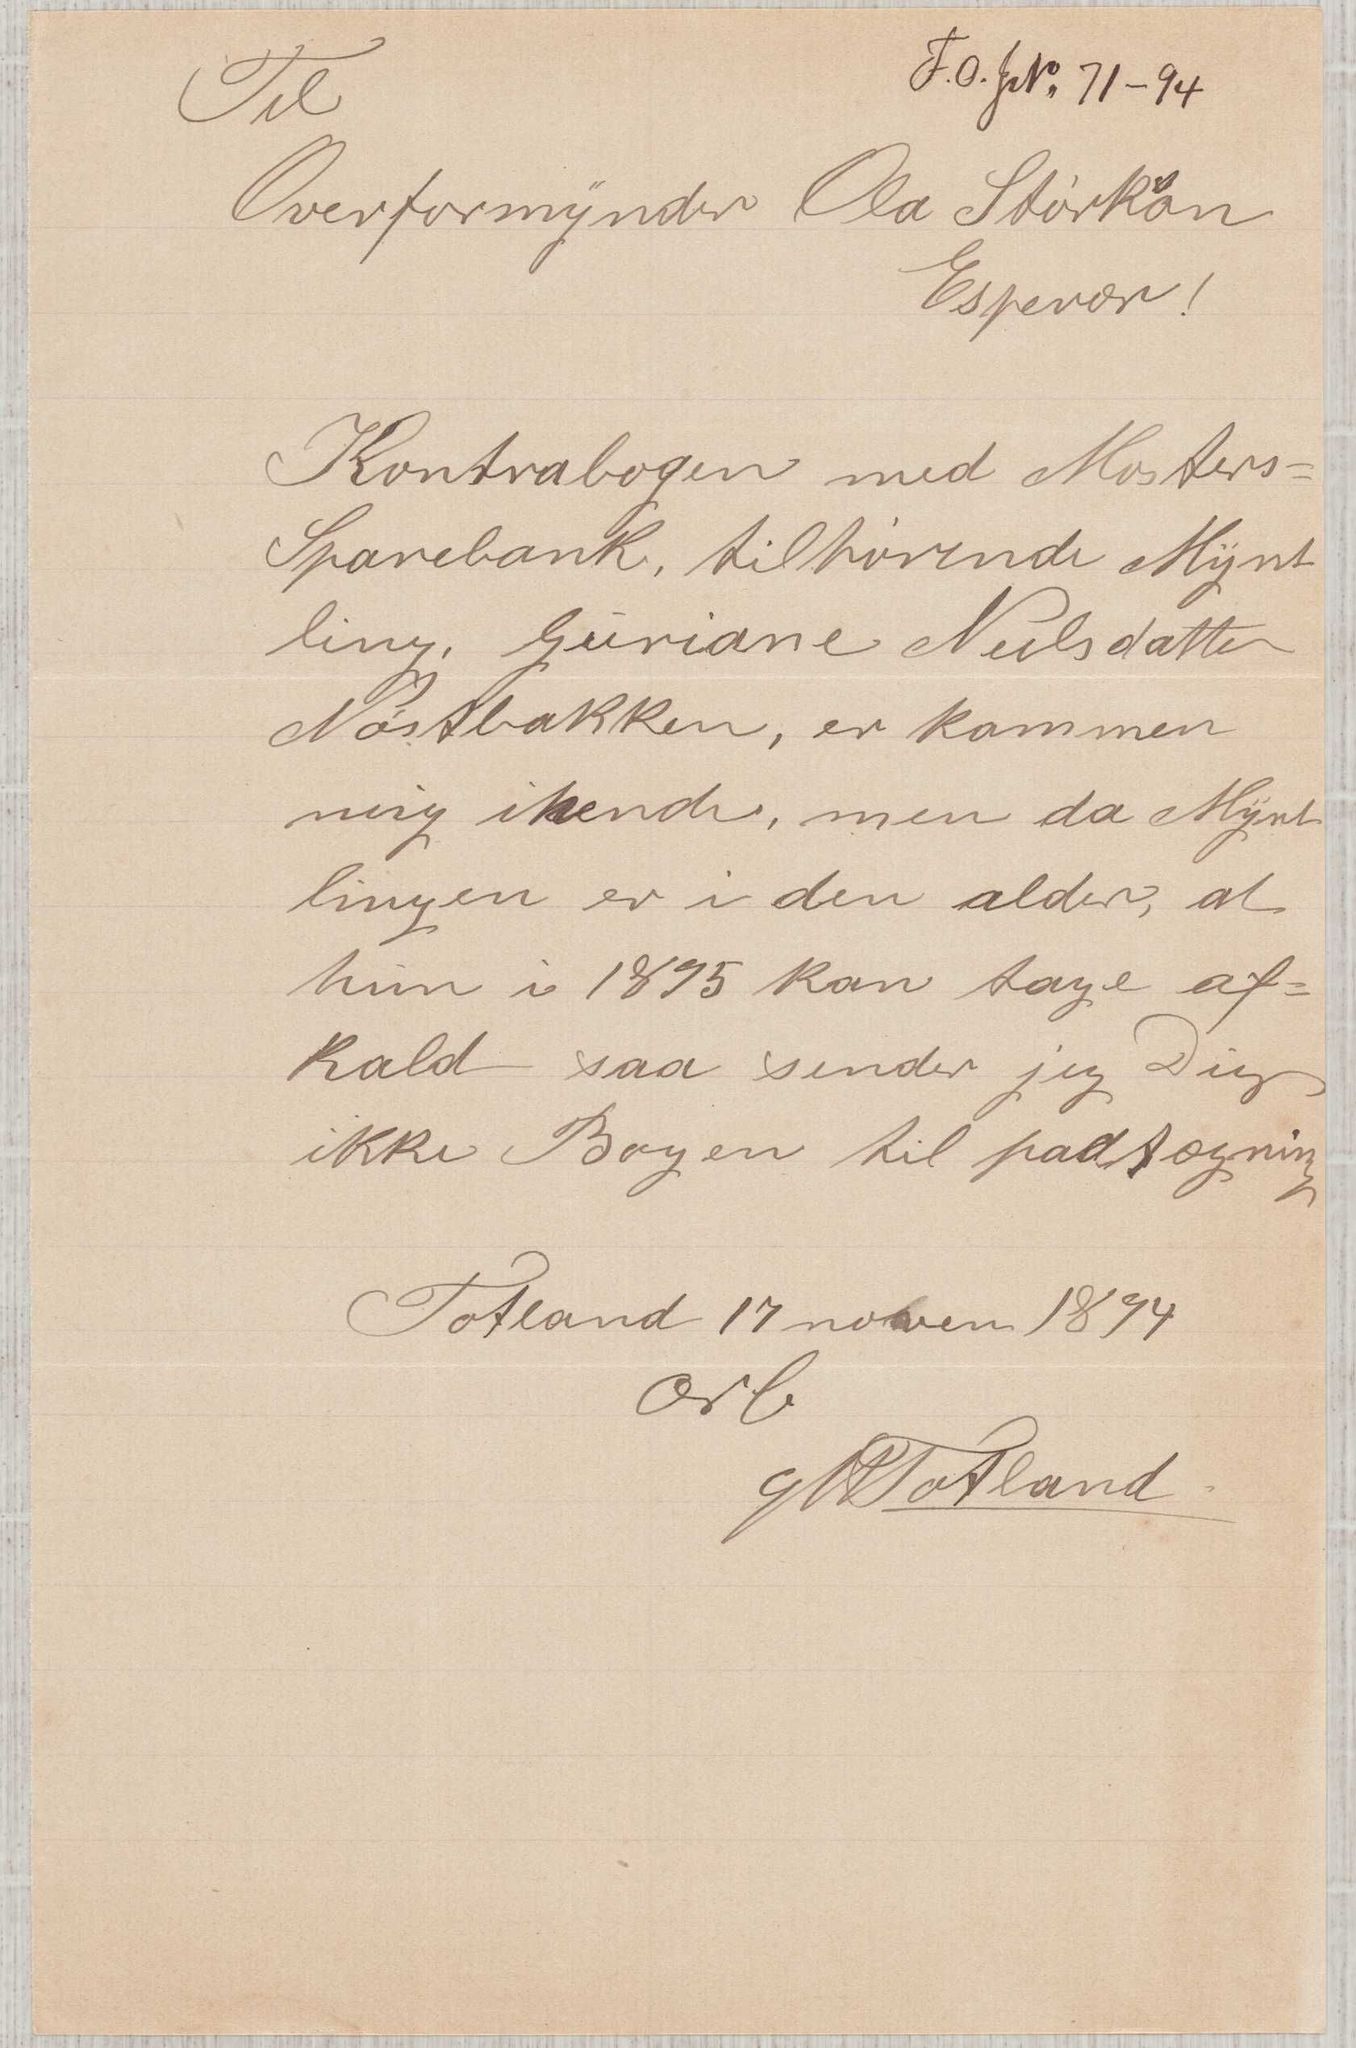 F.O.JNo. 71-94
Til
Overformynder Ola Störkön
Espevær!
Kontrabogen med Mosters=
Sparebank, tilhörende Mynt
ling, Guriane Neelsdatter
Nöstbakken, er kommen
mig ihende, men da Mynt
lingen er i den alder, at
hun i 1895 kan tage af=
kald saa sender jeg Dig
ikke Bogen til paategning
Totland 17 noven 1894
ærb
Totland